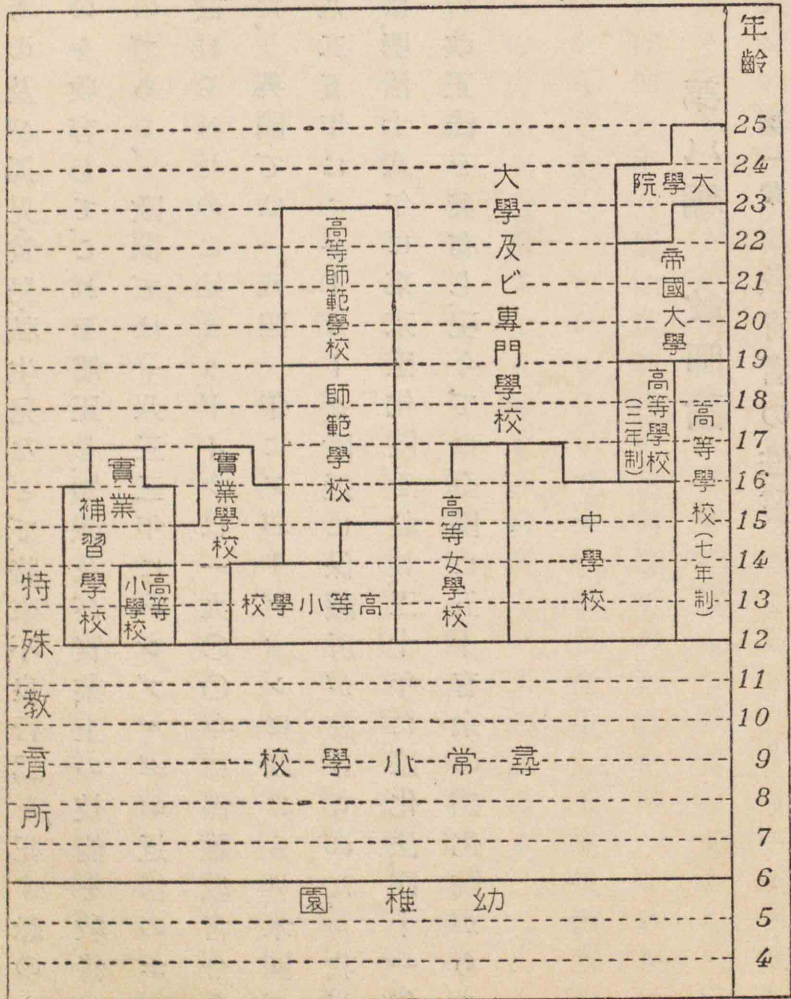 年齡
25
24
23
22
21
20
19
18
17
16
15
14
13
12
11
10
9
8
7
6
5
4
大學院
帝國大學
高等學校(三年制)
高等學校(七年制)
大學及ビ專門學校
中學校
高等女學校
高等師範學校
師範學校
高等小學校
實業學校
實業補習學校
高等小學校
特殊教育所
尋常小學校
幼稚園